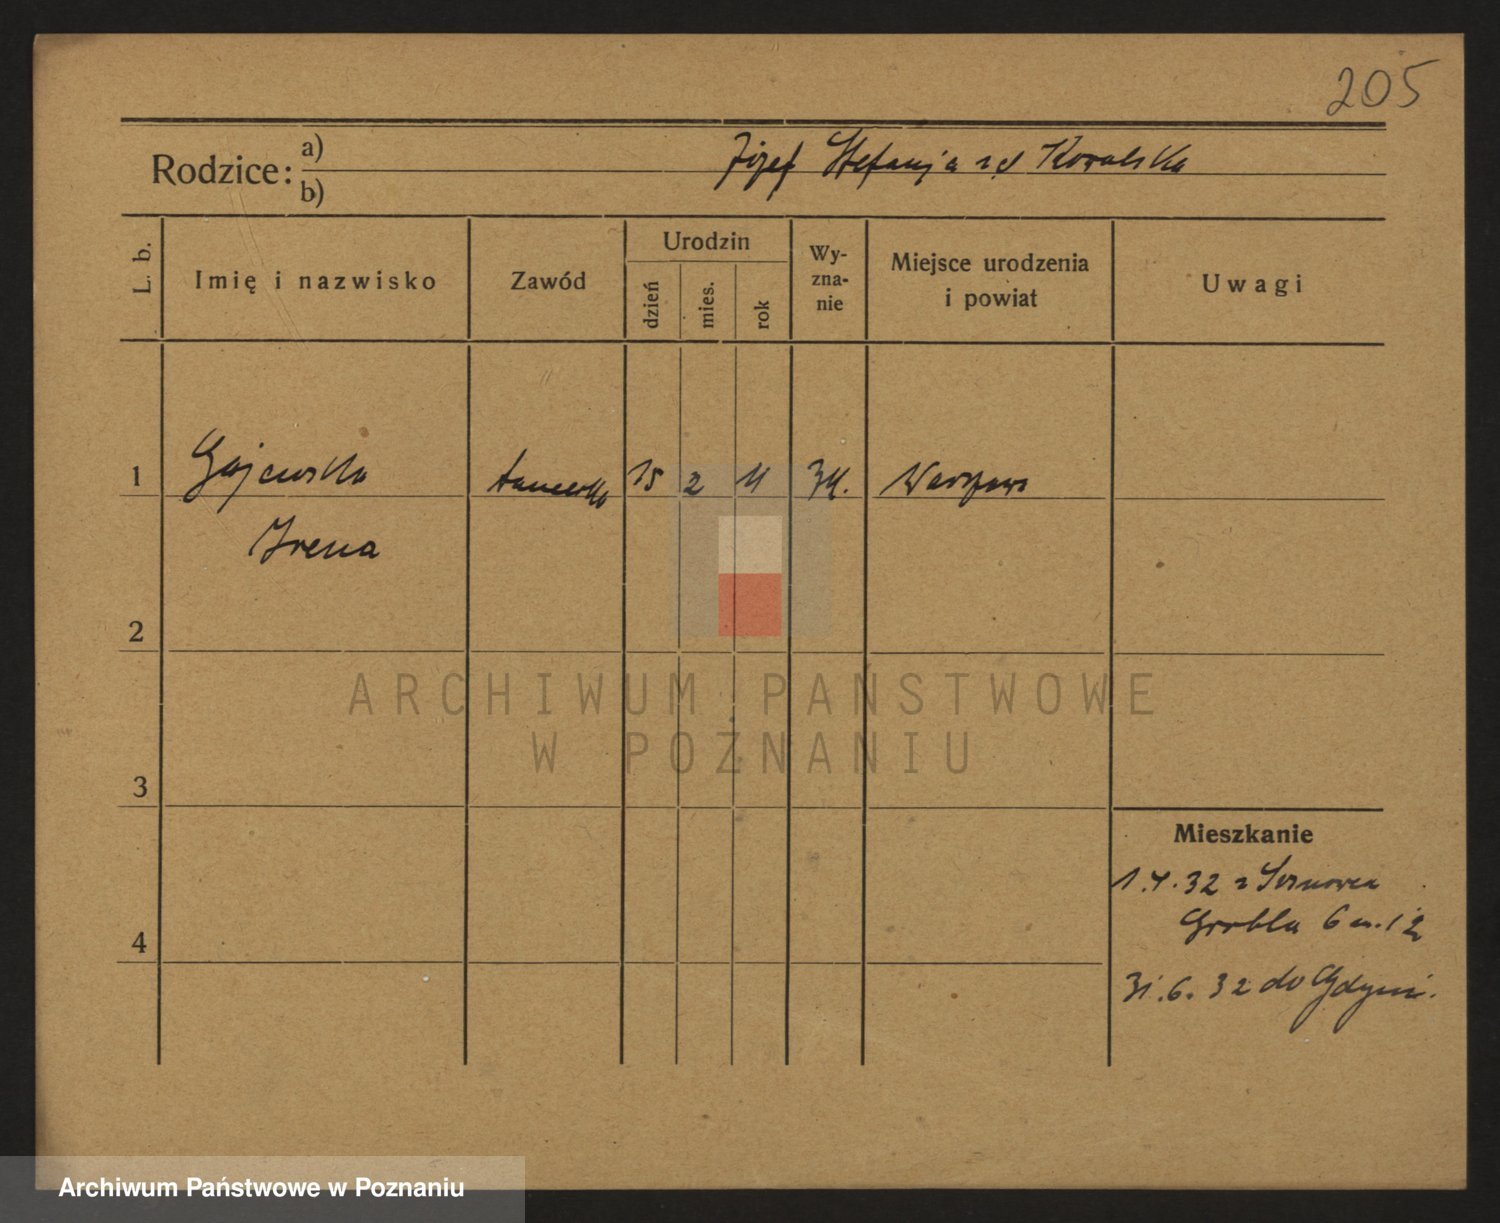 205
Rodzice: a) Józef Stefanja z d Kowalska
b)
L. b. Imię i nazwisko Zawód Urodzin dzień mies. rok Wy-zna-nie Miejsce urodzenia i powiat Uwagi
1 Gajewska tancerka 15 2 11 Warszawa
Irena
2
ARCHIWUM PAŃSTWOWE
W POZNANIU
3
Mieszkanie
1.4.32 z Sosnowca
Grobla 6 m. 12
4
31.6.32 do Gdyni.
Archiwum Państwowe w Poznaniu